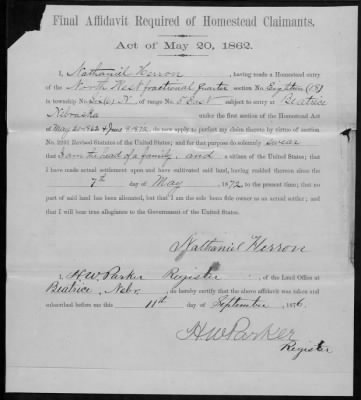 Final Affidavit Required of Homestead Claimants.
Act of May 20, 1862.
I, Nathaniel Herron, having made a Homestead entry
of the North West fractional quarter section No. Eighteen (18)
in township No. Six (6) N of range No. 5 East subject to entry at Beatrice
Nebraska under the first section of the Homestead Act
of May 20 1862 & June 8 1872, do now apply to perfect my claim thereto by virtue of section
No. 2291 Revised Statutes of the United States; and for that purpose do solemnly swear
that I am the head of a family, and a citizen of the United States; that I
have made actual settlement upon and have cultivated said land, having resided thereon since the
7th day of May, 1872, to the present time; that no
part of said land has been alienated, but that I am the sole bona fide owner as an actual settler; and
that I will bear true allegiance to the Government of the United States.
Nathaniel Herron
I, H. W. Parker Register, of the Land Office at
Beatrice, Nebr., do hereby certify that the above affidavit was taken and
subscribed before me this 11th day of September, 1876.
H W Parker
Register